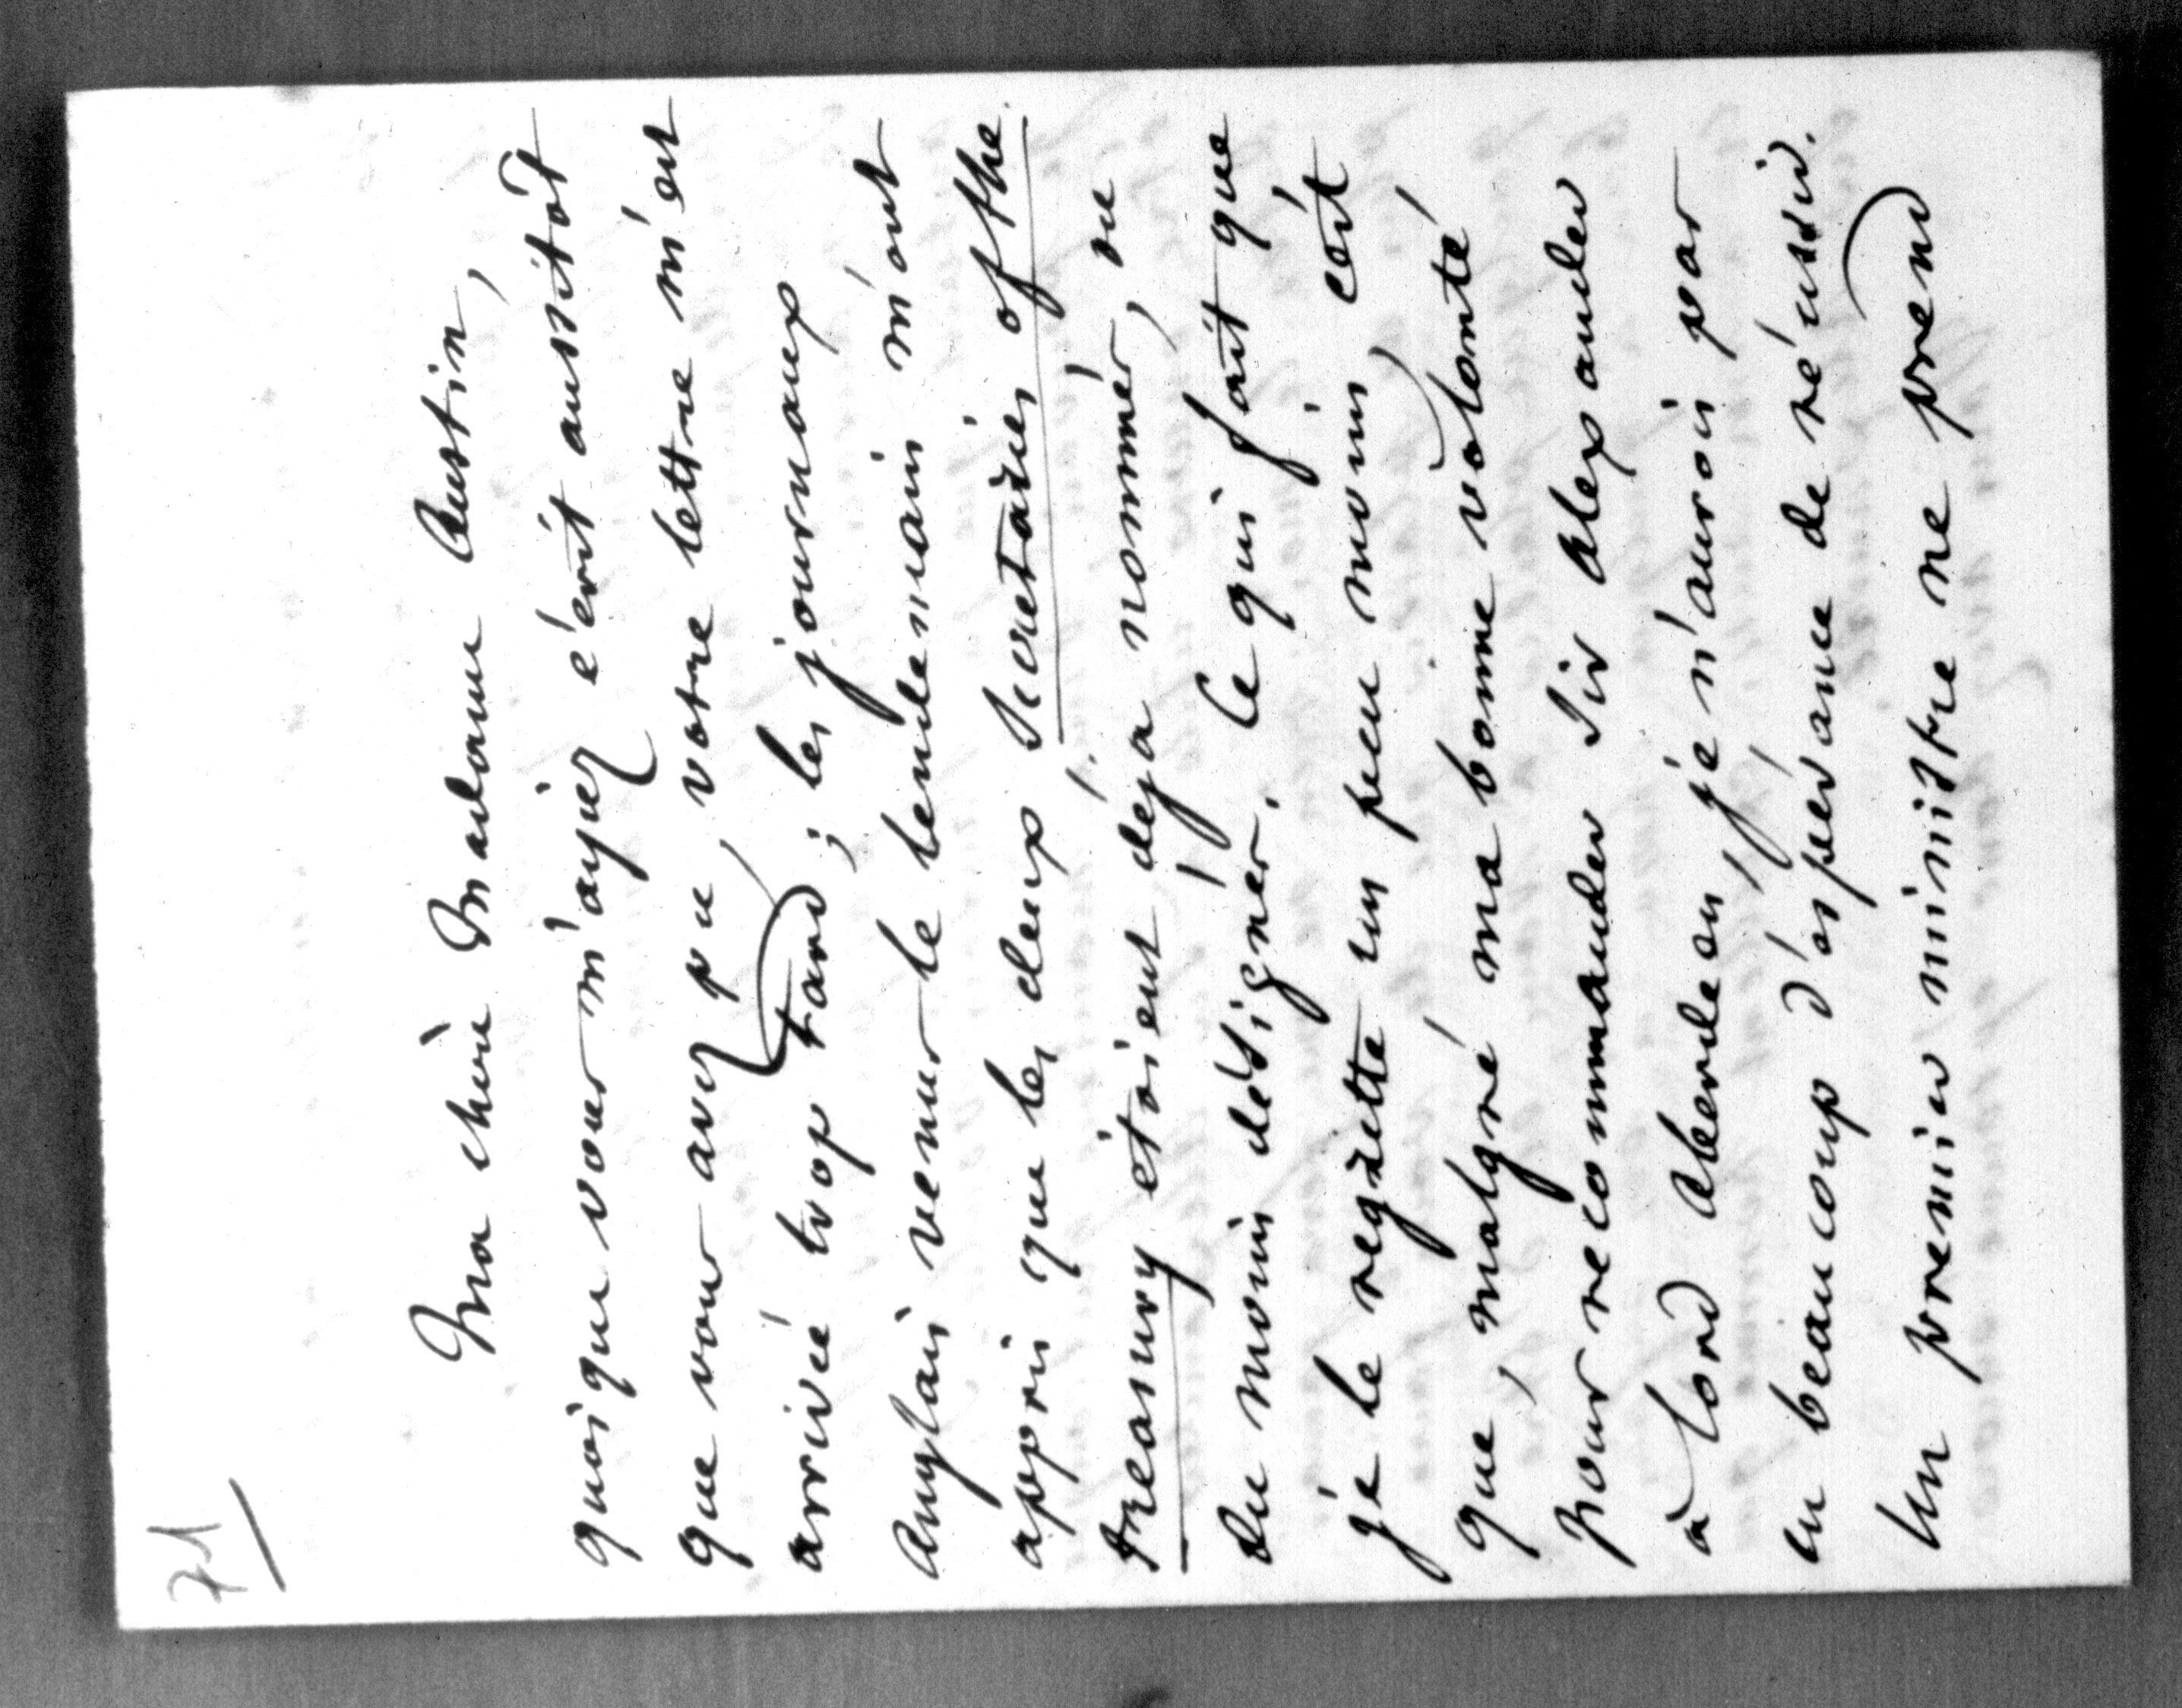 71
Ma chère Madame Austin,
quoique vous m'ayiez écrit aussitôt
que vous avez pu, votre lettre m'est
arrivée trop tard; les journaux
Anglais venus le lendemain m'ont
appris que les deux Secretaries of the
treasury étoient déja nommés, ou
du moins désignés. Ce qui fait que
je le regrette un peu moins, c'est
que, malgré ma bonne volonté
pour recommander Sir Alexander
à Lord Aberdeen, je n'aurois pas
eu beaucoup d'espérance de réussir.
Un premier ministre ne prend